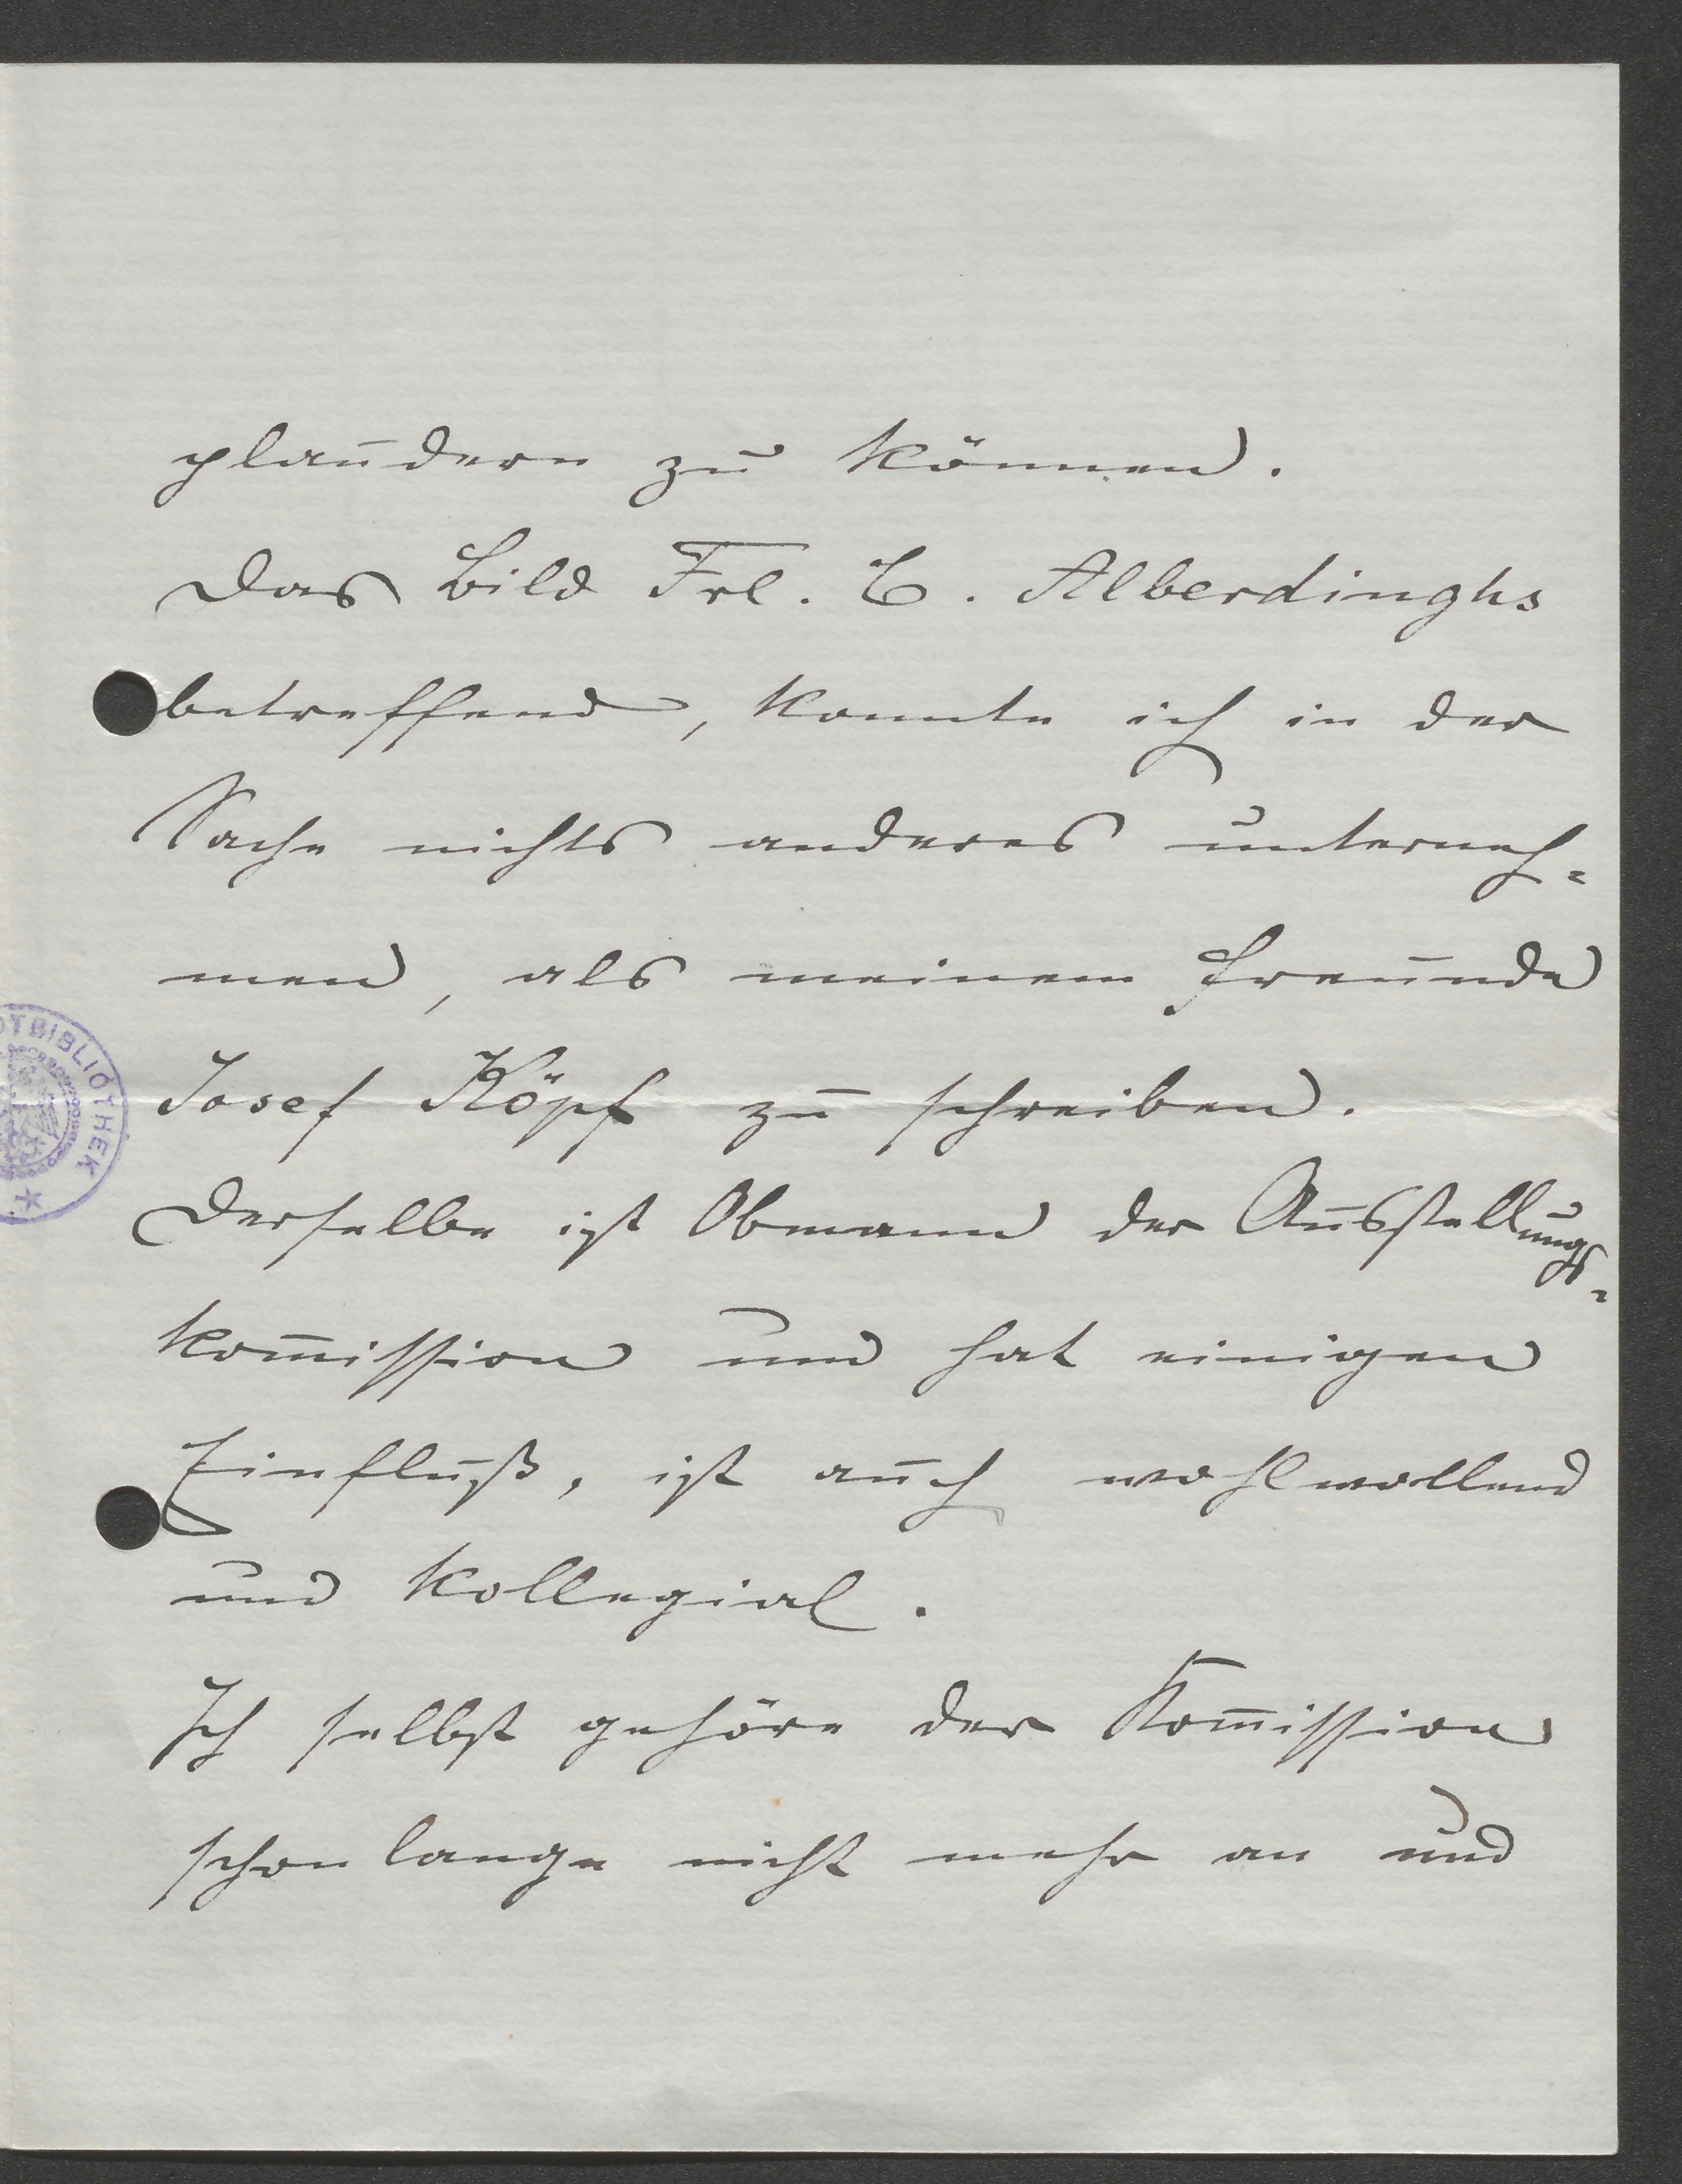 plaudern zu können.
Das Bild Frl. C. Alberdinghs
betreffend, konnte ich in der
Sache nichts anderes unterneh=
men, als meinem Freunde
Josef Köpf zu schreiben.
Derselbe ist Obmann der Ausstellungs=
kom̄ission und hat einigen
Einfluß, ist auch wohlwollend
und kollegial.
Ich selbst gehöre der Kom̄ission
schon lange nicht mehr an und
BIBLIOTHEK